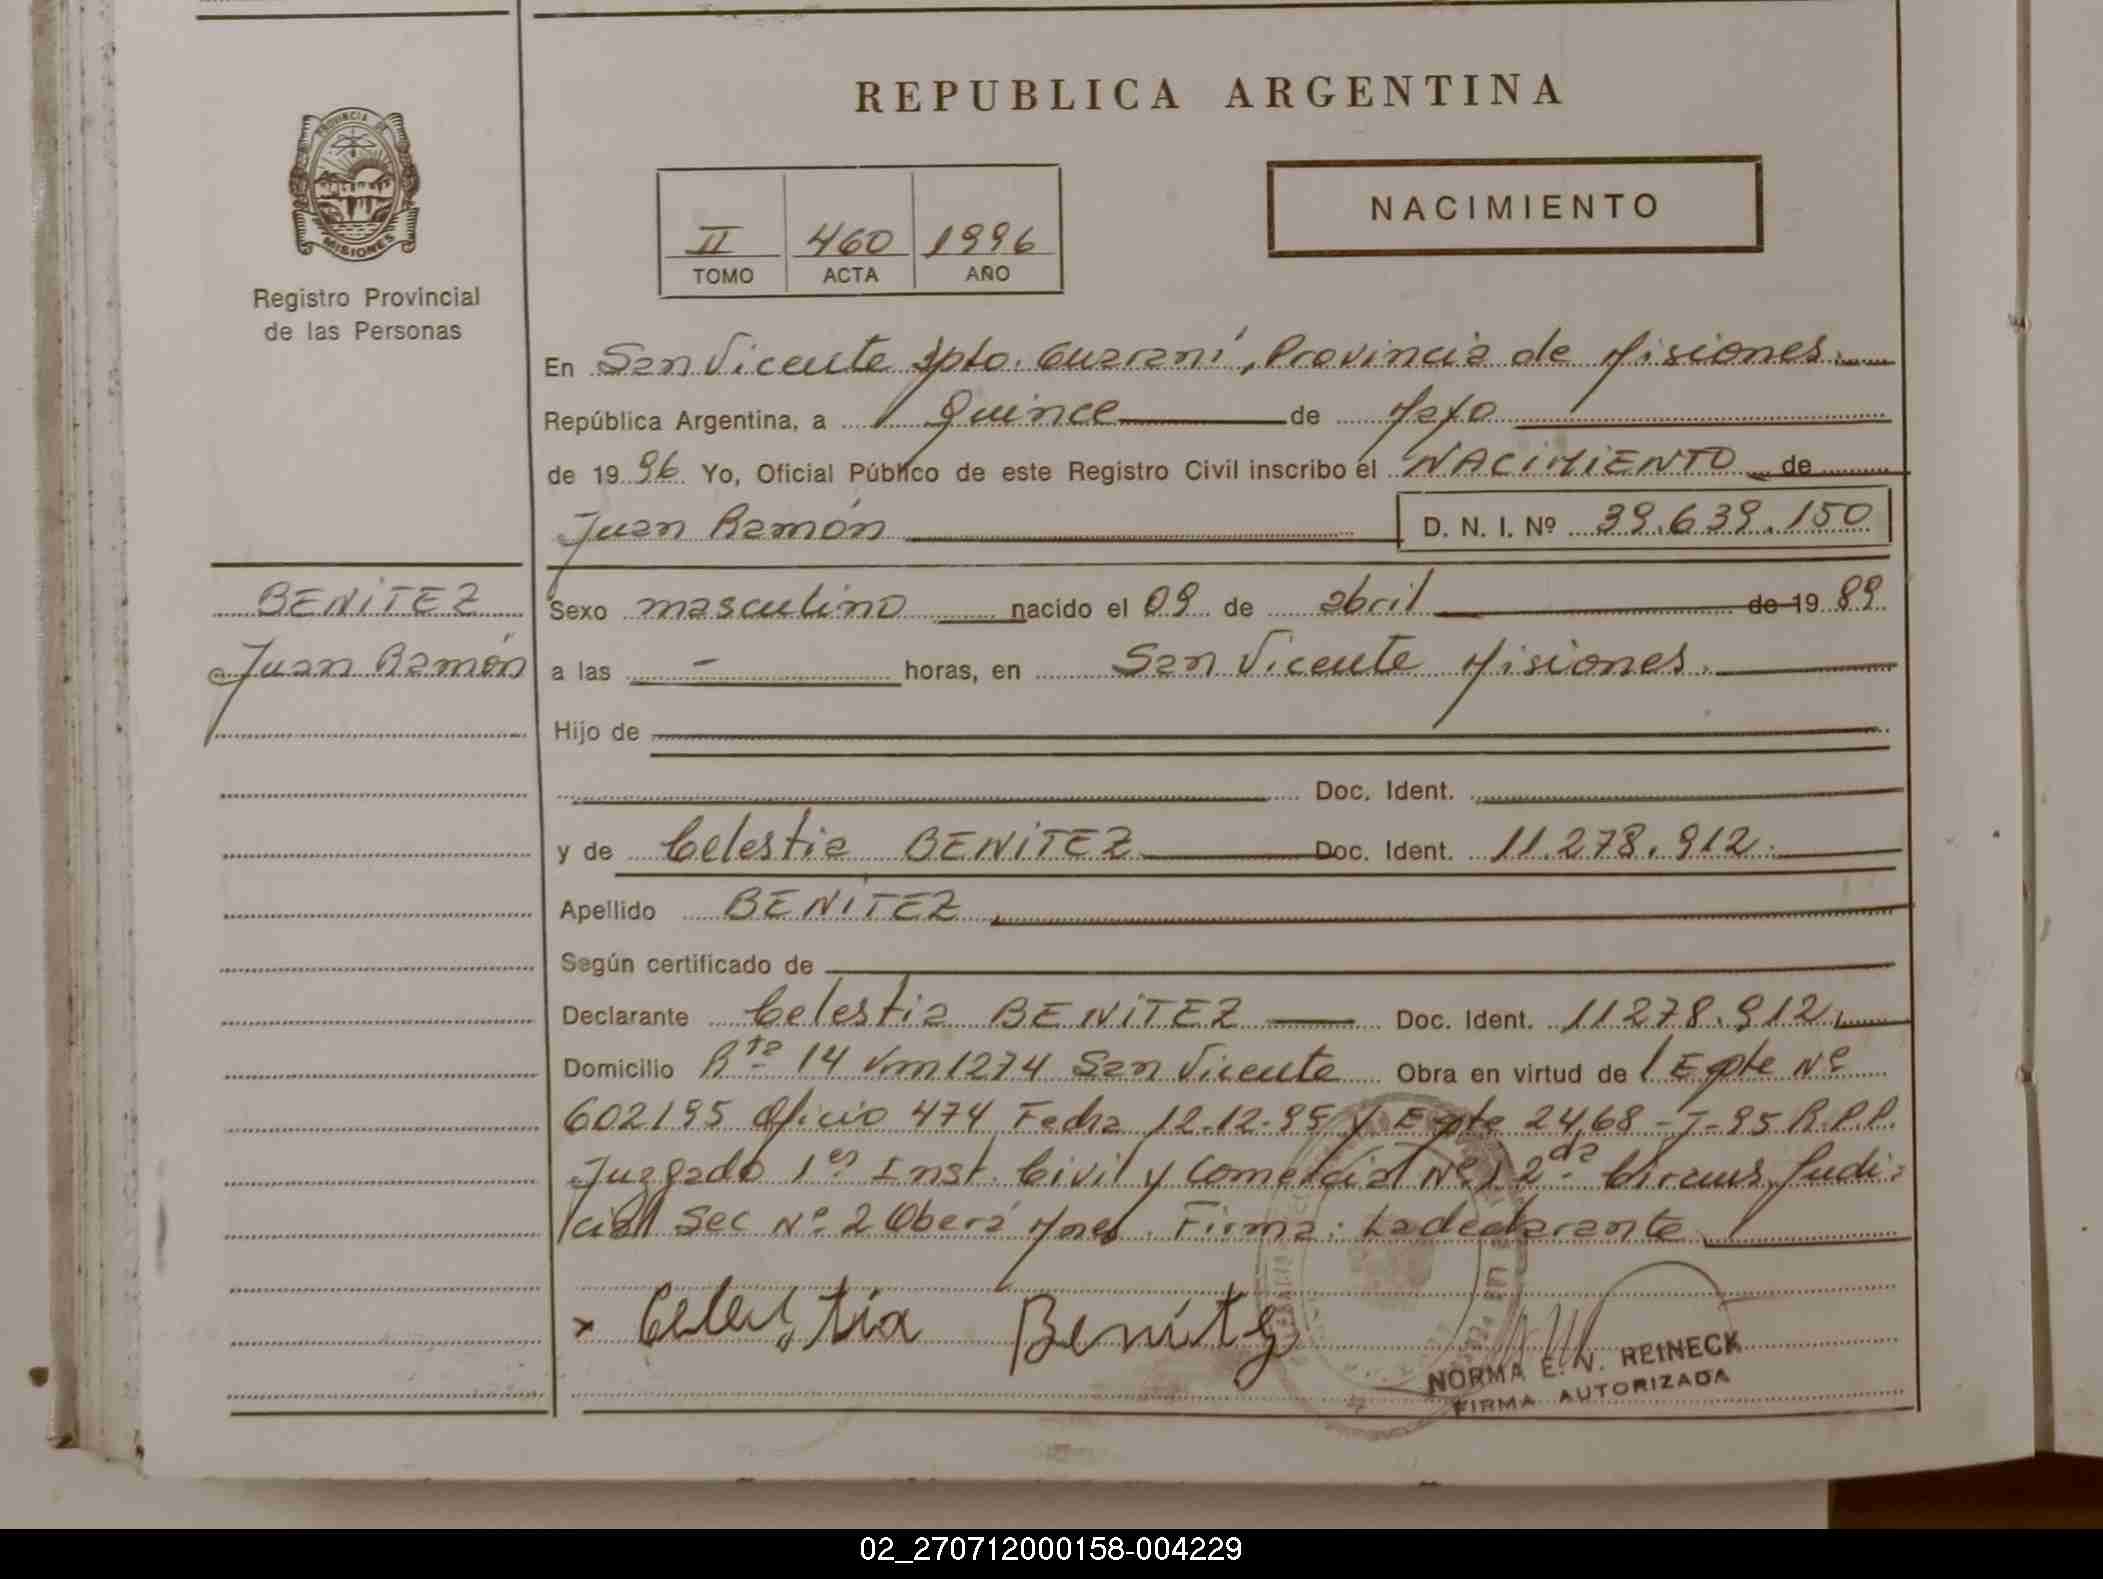 REPUBLICA ARGENTINA
PROVINCIA DE
MISIONES
Registro Provincial
de las Personas
II 460 1996
TOMO ACTA AÑO
NACIMIENTO
En San Vicente Dpto. Guaraní, Provincia de Misiones.
República Argentina, a Quince de Mayo
de 1996 Yo, Oficial Público de este Registro Civil inscribo el NACIMIENTO de
Juan Ramón D. N. I. Nº 39.639.150
BENiTEZ
Juan Ramón
Sexo masculino nacido el 09 de abril de 1989
a las - horas, en San Vicente Misiones.
Hijo de
Doc. Ident.
y de Celestia BENiTEZ Doc. Ident. 11.278.912.
Apellido BENiTEZ
Según certificado de
Declarante Celestia BENiTEZ Doc. Ident. 11278.912.
Domicilio Rta 14 Km 1274 San Vicente Obra en virtud de Epte Nº
602/95 Oficio 474 Fecha 12-12-95 y Epte 2468-J-95 R.P.P.
Juzgado 1er Inst. Civil y Comercial Nº 1 2da Circuns. Judi-
cial Sec Nº 2 Oberá Mnes. Firma: La declarante
x Celestia Benítez
NORMA E. V. REINECK
FIRMA AUTORIZADA
02_270712000158-004229